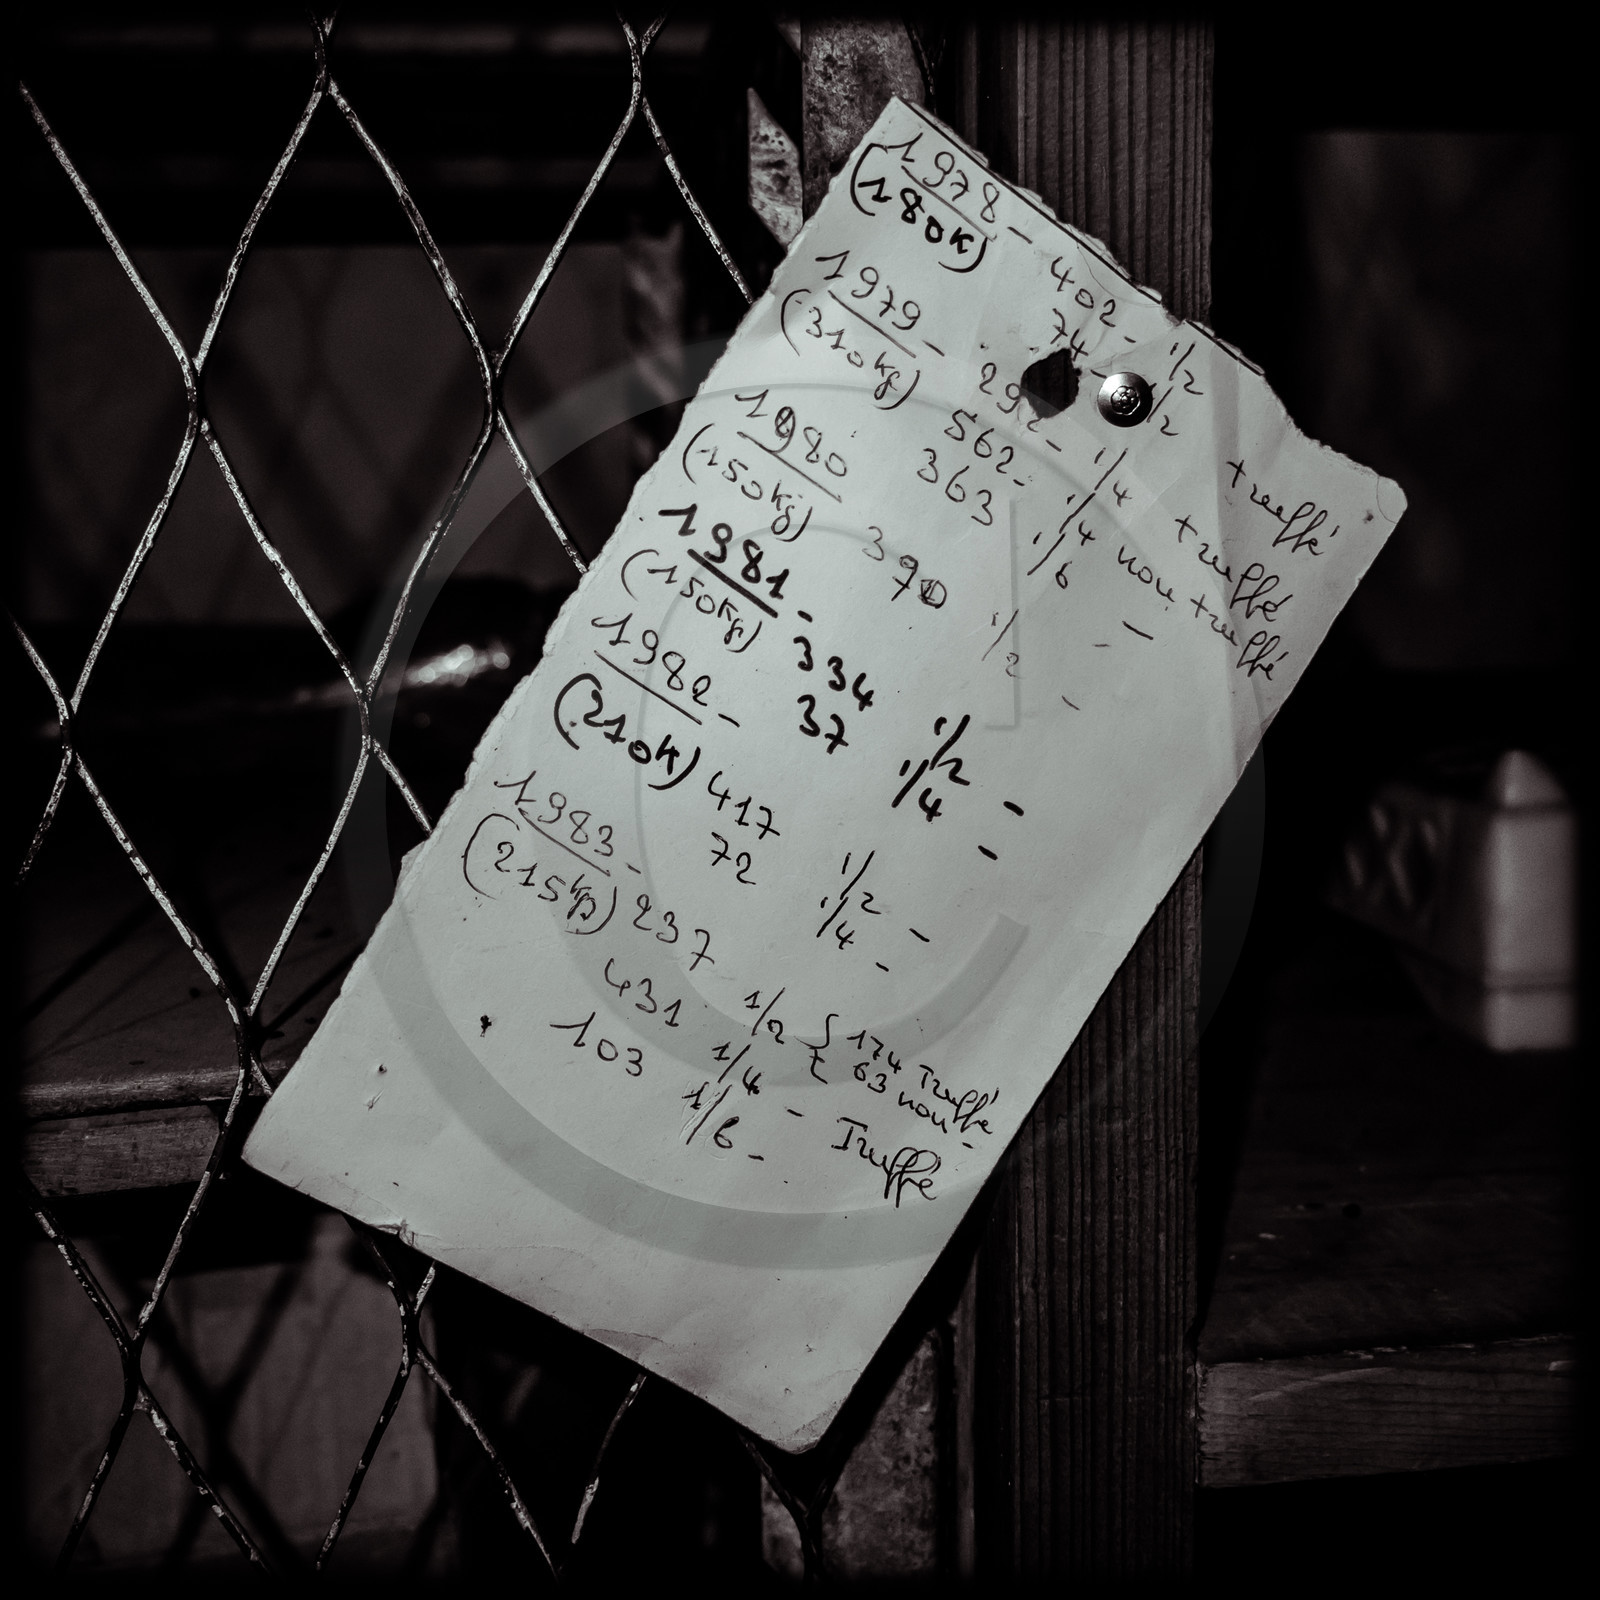 1978 - 402 - 1/2
(180K) 74 - 1/2
1979 - 292 - 1/4 truffé
(310kg) 562 - 1/4 non truffé
363 1/6 truffé
1980 390 1/2 -
(150kg)
1981 - 334 1/2 -
(150kg) 37 1/4 -
1982 - 417 1/2 -
(210K) 72 1/4 -
1983 - 237 1/2 { 174 Truffé
(215kg) 63 non -
431 1/4 - Truffé
103 1/6 -